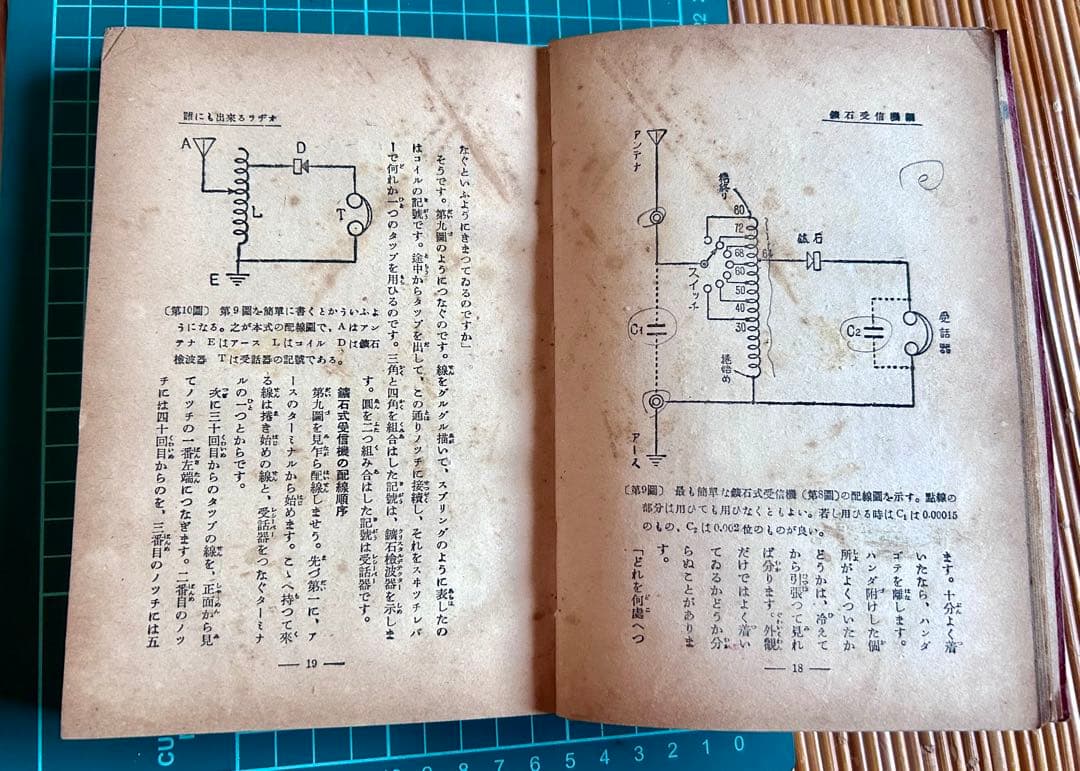 鑛石受信機編
アンテナ
捲終り
80
72
68
64
60
50
40
30
スイッチ
鑛石
C1
C2
受話器
捲始め
アース
〔第9圖〕 最も簡單な鑛石式受信機(第8圖)の配線圖を示す。點線の
部分は用ひても用ひなくともよい。若し用ひる時はC₁は0.00015
のもの、C₂は0.002位のものが良い。
ます。十分よく着
いたなら、ハンダ
ゴテを離します。
ハンダ附けした個
所がよくついたか
どうかは、冷えて
から引張つて見れ
ば分ります。外觀
だけではよく着い
てゐるかどうか分
らぬことがありま
す。
「どれを何處へつ
— 18 —
誰にも出來るラヂオ
A
D
L
T
E
〔第10圖〕 第9圖を簡單に書くとかういふよ
うになる。之が本式の配線圖で、Aはアン
テナ Eはアース Lはコイル Dは鑛石
檢波器 Tは受話器の記號である。
なぐといふようにきまつてゐるのですか」
そうです。第九圖のようにつなぐのです。線をグルグル描いて、スプリングのように表したの
はコイルの記號です。途中からタップを出して、この通りノッチに接續し、それをスヰッチレバ
ーで何れか一つのタップを用ひるのです。三角と四角を組合はした記號は、鑛石檢波器を示しま
す。圓を二つ組み合はした記號は受話器です。
鑛石式受信機の配線順序
第九圖を見乍ら配線しませう。先づ第一に、ア
ースのターミナルから始めます。こゝへ持つて來
る線は捲き始めの線と、受話器をつなぐターミナ
ルの一つとからです。
次に三十回目からのタップの線を、正面から見
てノッチの一番左端につなぎます。二番目のノッ
チには四十回目からのを、三番目のノッチには五
— 19 —
10 9 8 7 6 5 4 3 2 1 0